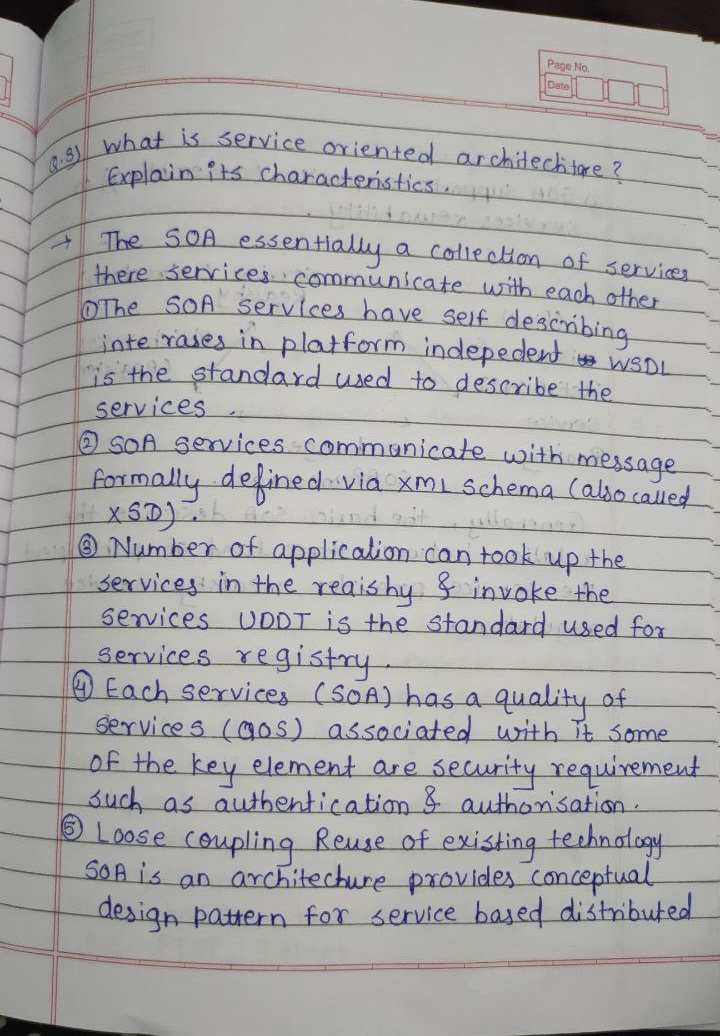 Page No.
Date
Q.3) What is service oriented architechtore?
Explain its characteristics.
→ The SOA essentially a collection of services
there services communicate with each other
① The SOA services have self describing
inte rases in platform indepedent WSDL
is the standard used to describe the
services.
② SOA services communicate with message
formally defined via XML schema (also called
XSD).
③ Number of application can took up the
services in the reaishy & invoke the
services UDDT is the standard used for
services registry.
④ Each services (SOA) has a quality of
services (qos) associated with it some
of the key element are security requirement
such as authentication & authorisation.
⑤ Loose coupling Reuse of existing technology
SOA is an architechure provides conceptual
design pattern for service based distributed